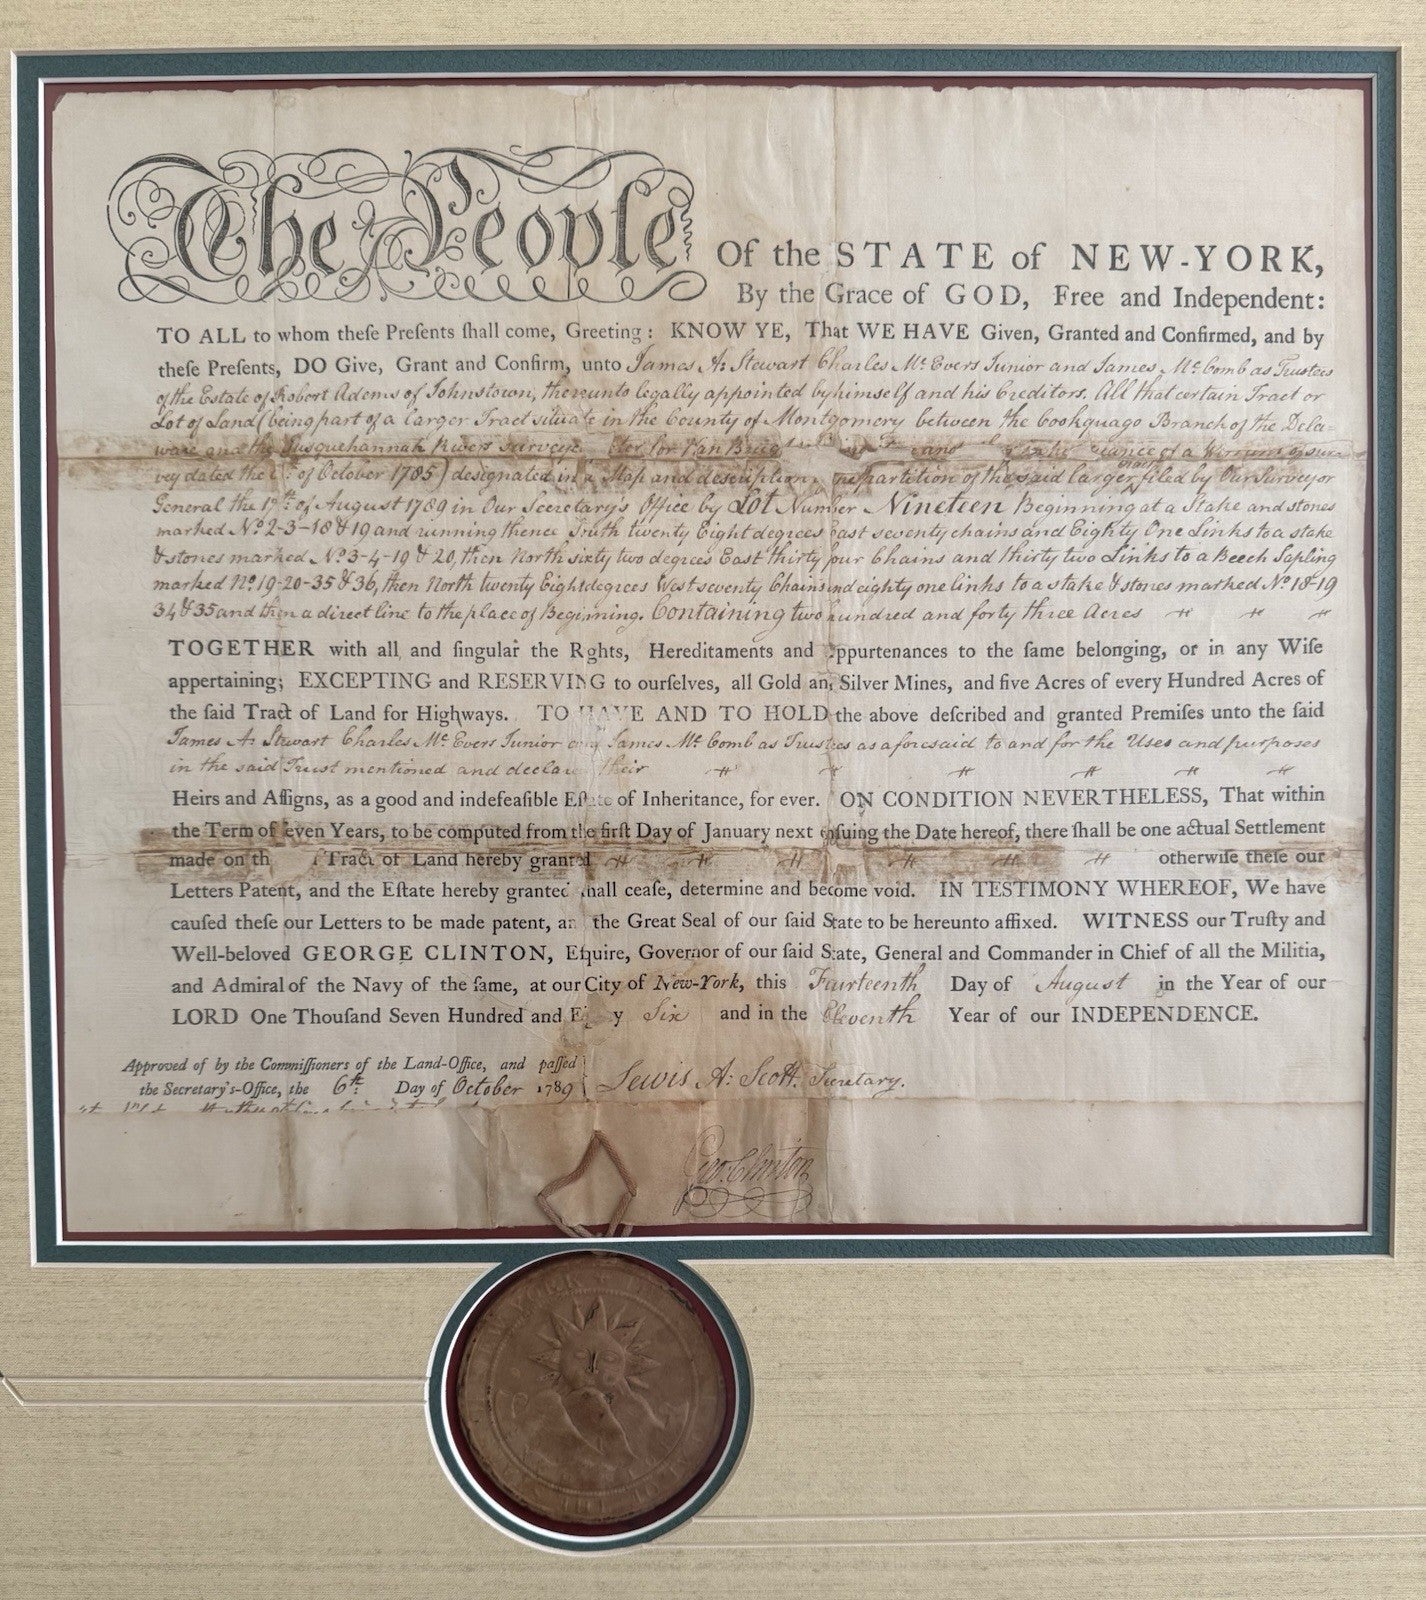 The People Of the STATE of NEW-YORK,
By the Grace of GOD, Free and Independent:
TO ALL to whom theſe Preſents ſhall come, Greeting: KNOW YE, That WE HAVE Given, Granted and Confirmed, and by
theſe Preſents, DO Give, Grant and Confirm, unto James A: Stewart Charles Mc. Evers Junior and James Mc. Comb as Trustees
of the Estate of Robert Adems of Johnstown, thereunto legally appointed by himself and his Creditors. All that certain Tract or
Lot of Land (being part of a larger Tract situate in the County of Montgomery between the Cookquago Branch of the Dela=
ware and the Susquehannah Rivers for Van of a of Sur
vey dated the of October 1785) designated in a Map and description of the said larger filed by Our Surveyor
General the 17th. of August 1789 in Our Secretary's Office by Lot Number Nineteen Beginning at a Stake and stones
marked No. 2-3-18 & 19 and running thence South twenty Eight degrees East seventy chains and Eighty One Links to a stake
& stones marked No. 3-4-19 & 20, then North sixty two degrees East thirty four Chains and thirty two Links to a Beech Sapling
marked No. 19-20-35 & 36, then North twenty Eight degrees West seventy Chains and eighty one links to a stake & stones marked No. 18-19
34 & 35 and then a direct line to the place of Beginning. Containing two hundred and forty three Acres
TOGETHER with all and ſingular the Rghts, Hereditaments and Appurtenances to the ſame belonging, or in any Wiſe
appertaining; EXCEPTING and RESERVING to ourſelves, all Gold and Silver Mines, and five Acres of every Hundred Acres of
the ſaid Tract of Land for Highways. TO HAVE AND TO HOLD the above deſcribed and granted Premiſes unto the ſaid
James A: Stewart Charles Mc. Evers Junior and James Mc. Comb as Trustees as aforesaid to and for the Uses and purposes
in the said Trust mentioned and their
Heirs and Aſſigns, as a good and indefeaſible Eſtate of Inheritance, for ever. ON CONDITION NEVERTHELESS, That within
the Term of ſeven Years, to be computed from the firſt Day of January next enſuing the Date hereof, there ſhall be one actual Settlement
made on th Tract of Land hereby granted otherwiſe theſe our
Letters Patent, and the Eſtate hereby granted ſhall ceaſe, determine and become void. IN TESTIMONY WHEREOF, We have
cauſed theſe our Letters to be made patent, and the Great Seal of our ſaid State to be hereunto affixed. WITNESS our Truſty and
Well-beloved GEORGE CLINTON, Eſquire, Governor of our ſaid State, General and Commander in Chief of all the Militia,
and Admiral of the Navy of the ſame, at our City of New-York, this Fourteenth Day of August in the Year of our
LORD One Thouſand Seven Hundred and Eighty Six and in the Eleventh Year of our INDEPENDENCE.
Approved of by the Commiſſioners of the Land-Office, and paſſed
the Secretary's-Office, the 6th. Day of October 1789 Lewis A: Scott. Secretary.
Geo. Clinton